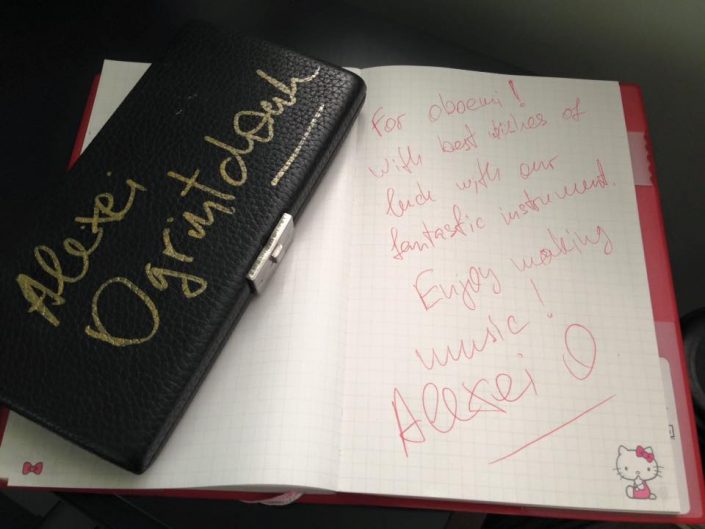 Alexei
Ogrintchouk
For oboemi!
with best wishes of
luck with our
fantastic instrument.
Enjoy making
music!
Alexei O